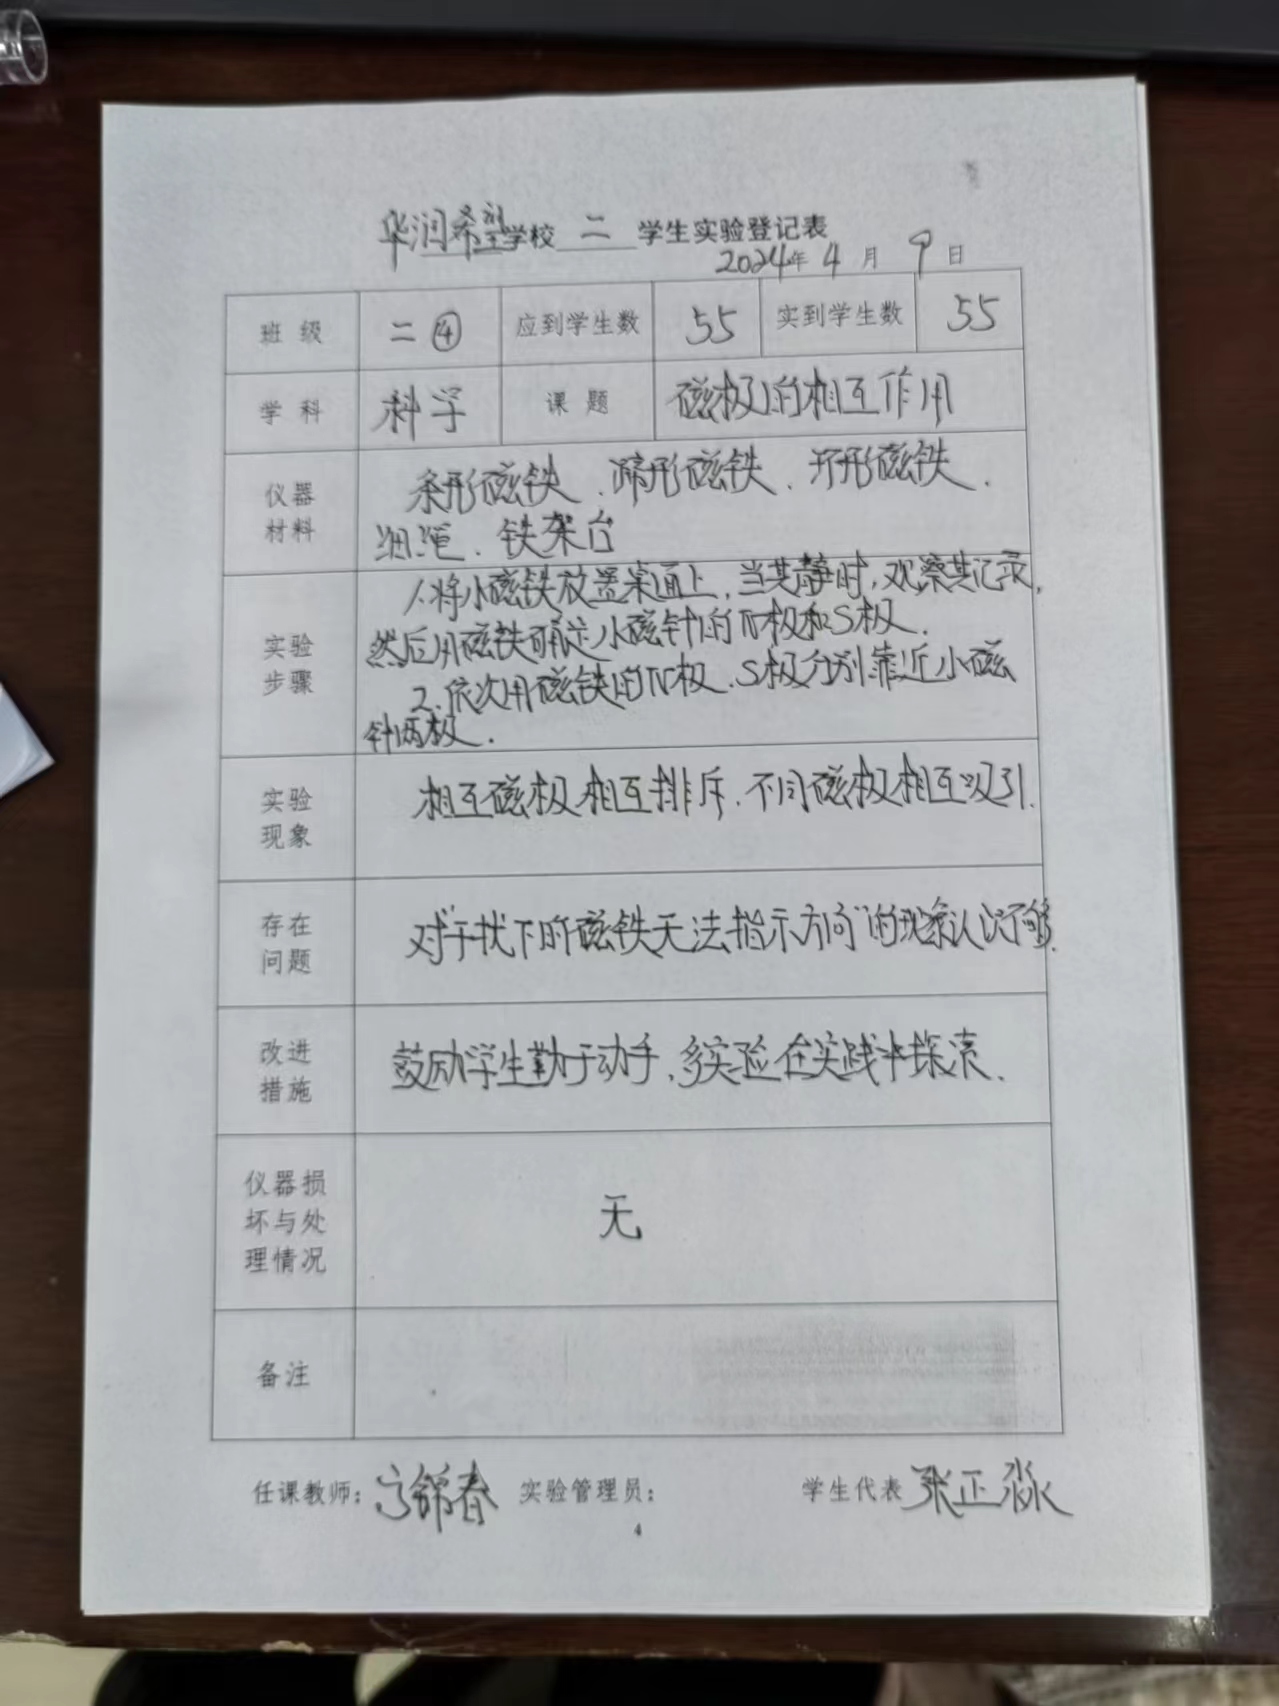 华润希望学校 二 学生实验登记表
2024年 4 月 9 日
班 级 二④ 应到学生数 55 实到学生数 55
学 科 科学 课 题 磁极的相互作用
仪器材料 条形磁铁、蹄形磁铁、环形磁铁、
细绳、铁架台
实验步骤 1.将小磁铁放置桌面上,当其静时,观察其记录,
然后用磁铁确定小磁针的N极和S极.
2.依次用磁铁的N极、S极分别靠近小磁
针两极.
实验现象 相互磁极相互排斥,不同磁极相互吸引.
存在问题 对“干扰下的磁铁无法指示方向”的现象认识不够.
改进措施 鼓励学生勤于动手,多实验在实践中探索.
仪器损坏与处理情况 无
备注
任课教师: 锦春 实验管理员: 学生代表 张正淼
4